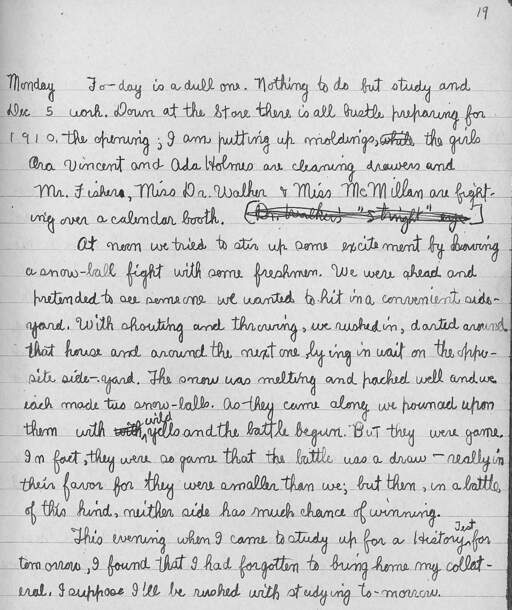 19
Monday To-day is a dull one. Nothing to do but study and
Dec 5 work. Down at the Store there is all bustle preparing for
1910. the opening; I am putting up moldings, while the girls
Ora Vincent and Ada Holmes are cleaning drawers and
Mr. Fishers, Miss Dr. Walker & Miss McMillan are fight-
ing over a calendar booth. [Dr. Walkers "Straight" eye]
At noon we tried to stir up some excitement by having
a snow-ball fight with some freshmen. We were ahead and
pretended to see someone we wanted to hit in a convenient side-
yard. With shouting and throwing, we rushed in, darted around
that house and around the next one, lying in wait on the oppo-
site side-yard. The snow was melting and packed well and we
each made two snow-balls. As they came along we pounced upon
them with with wild yells and the battle begun. But they were game.
In fact, they were so game that the battle was a draw - really in
their favor for they were smaller than we; but then, in a battle
of this kind, neither side has much chance of winning.
This evening when I came to study up for a History Test for
tomorrow, I found that I had forgotten to bring home my collat-
eral. I suppose I'll be rushed with studying to-morrow.